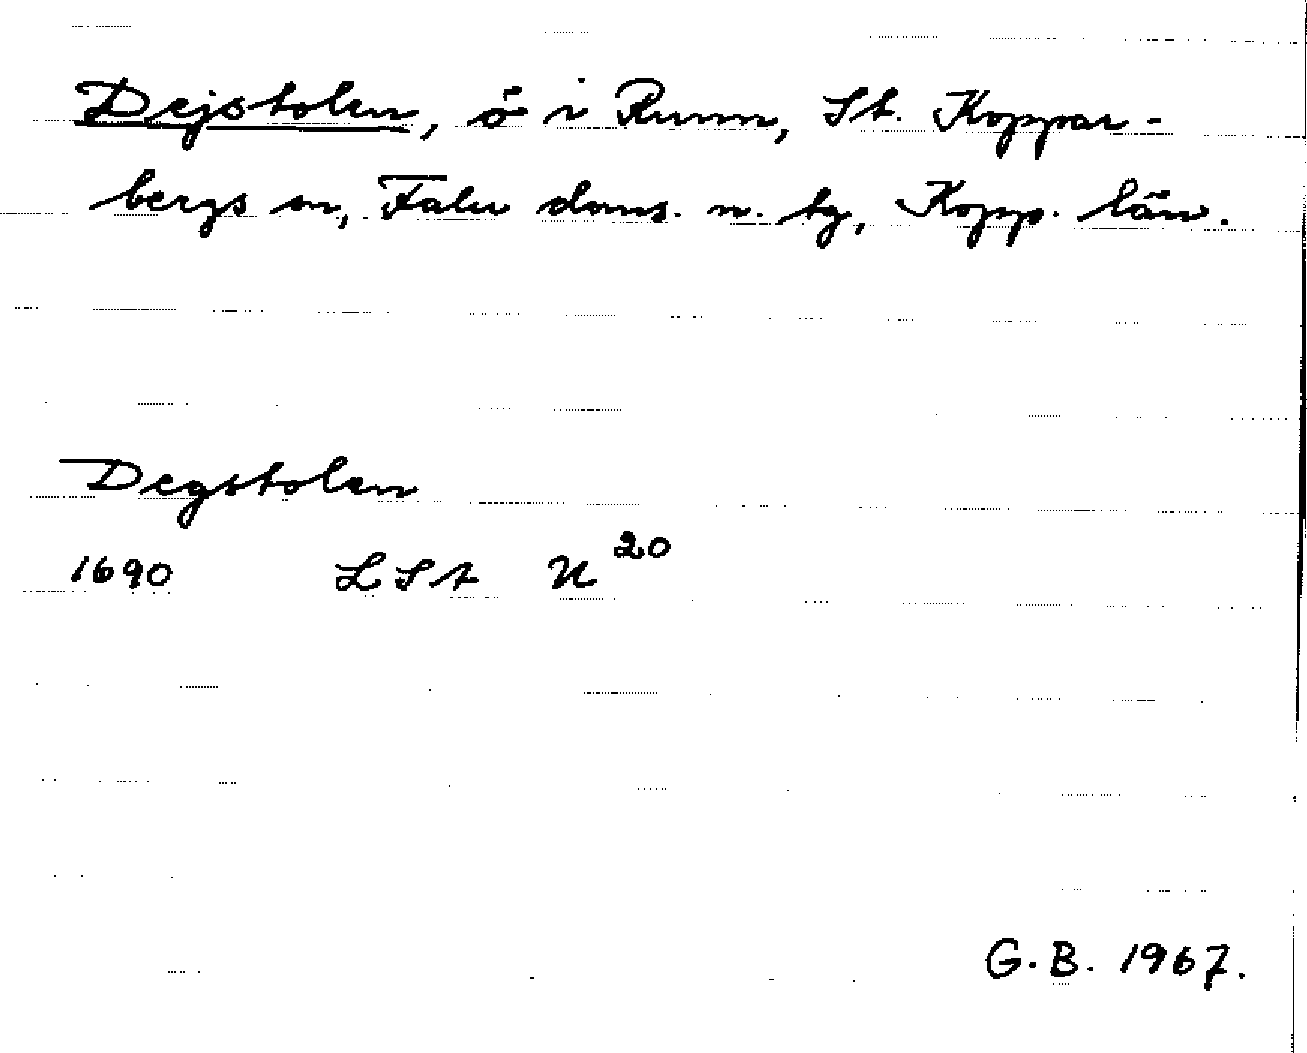 Dejstolen, ö i Runn, St. Koppar-
bergs sn, Falu doms. n. tg, Kopp. län.
Degstolen
1690 LSA N 20
G.B. 1967.